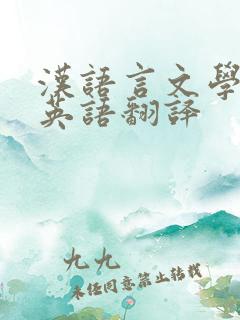 漢語言文學
英語翻譯
九九
未经同意禁止转载